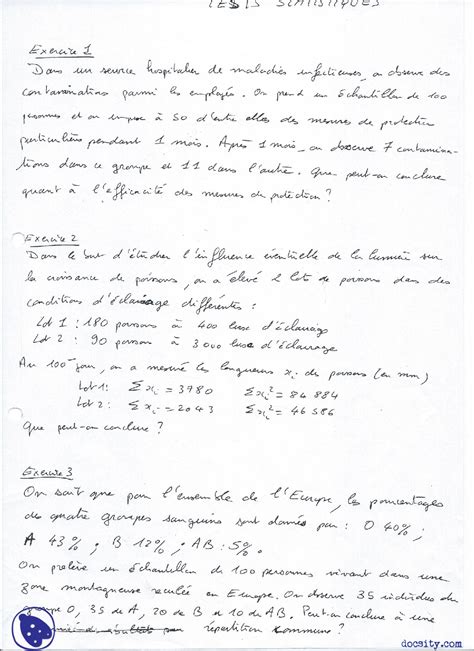 TESTS STATISTIQUES
Exercice 1
Dans un service hospitalier de maladies infectieuses, on observe des
contaminations parmi les employés. On prend un échantillon de 100
personnes et on impose à 50 d'entre elles des mesures de protection
particulières pendant 1 mois. Après 1 mois, on observe 7 contamina-
tions dans ce groupe et 11 dans l'autre. Que peut-on conclure
quant à l'efficacité des mesures de protection ?
Exercice 2
Dans le but d'étudier l'influence éventuelle de la lumière sur
la croissance de poissons, on a élevé 2 lots de poissons dans des
conditions d'éclairage différentes :
Lot 1 : 180 poissons à 400 luxe d'éclairage
Lot 2 : 90 poissons à 3000 luxe d'éclairage
Au 100e jour, on a mesuré les longueurs xi de poissons (en mm)
Lot 1: Σxi = 3780 Σxi² = 84 884
Lot 2: Σxi = 2043 Σxi² = 46 586
Que peut-on conclure ?
Exercice 3
On sait que pour l'ensemble de l'Europe, les pourcentages
des quatre groupes sanguins sont donnés par : O 40% ;
A 43% ; B 12% ; AB : 5%.
On prélève un échantillon de 100 personnes vivant dans une
zone montagneuse reculée en Europe. On observe 35 individus du
groupe O, 35 de A, 20 de B et 10 de AB. Peut-on conclure à une
répartition commune ?
docsity.com